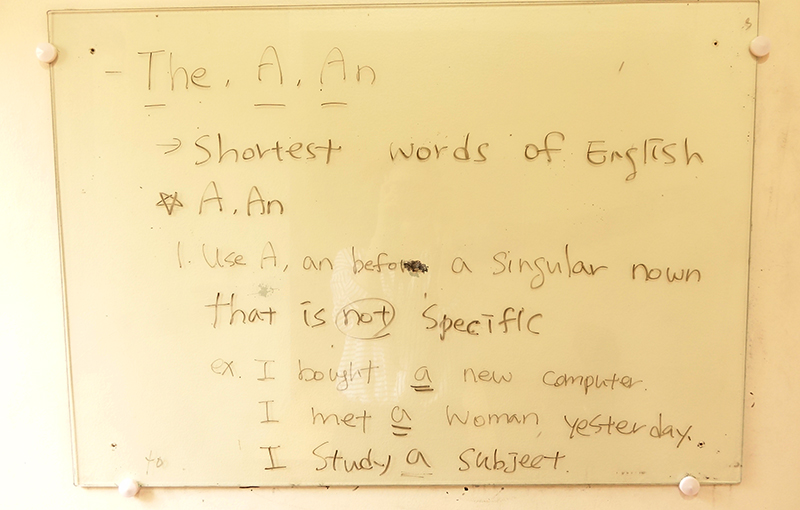 - The, A, An
→ Shortest words of English
☆ A, An
1. Use A, an before a singular nown
that is not specific
ex. I bought a new computer.
I met a woman, yesterday.
I study a subject.